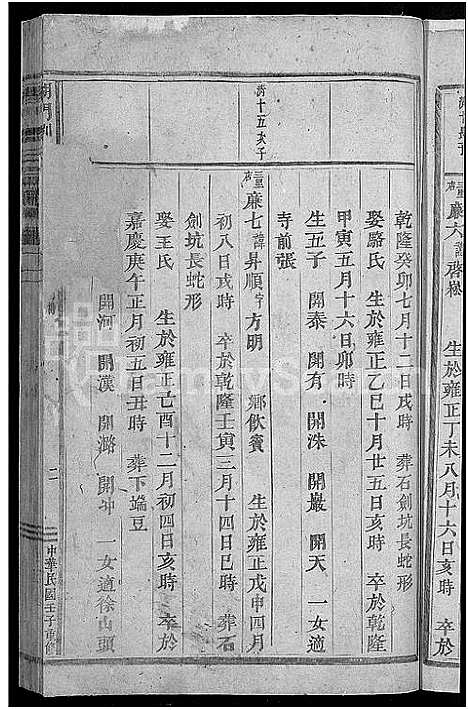 廉六諱啓崧　生於雍正丁未八月十六日亥時　卒於
乾隆癸卯七月十二日戌時　葬石劍坑長蛇形
娶駱氏　生於雍正乙巳十月廿五日亥時　卒於乾隆
甲寅五月十六日卯時
生五子　開泰　開有　開洙　開巖　開天　一女適
寺前張
濟十五次子
廉七諱昇順字方明　鄉飲賓　生於雍正戊申四月
初八日戌時　卒於乾隆壬寅三月十四日巳時　葬石
劍坑長蛇形
娶王氏　生於雍正己酉十二月初四日亥時　卒於
嘉慶庚午正月初五日丑時　葬下端豆
開河　開漢　開潞　開冲　一女適徐山頭
二
中華民國壬子重修